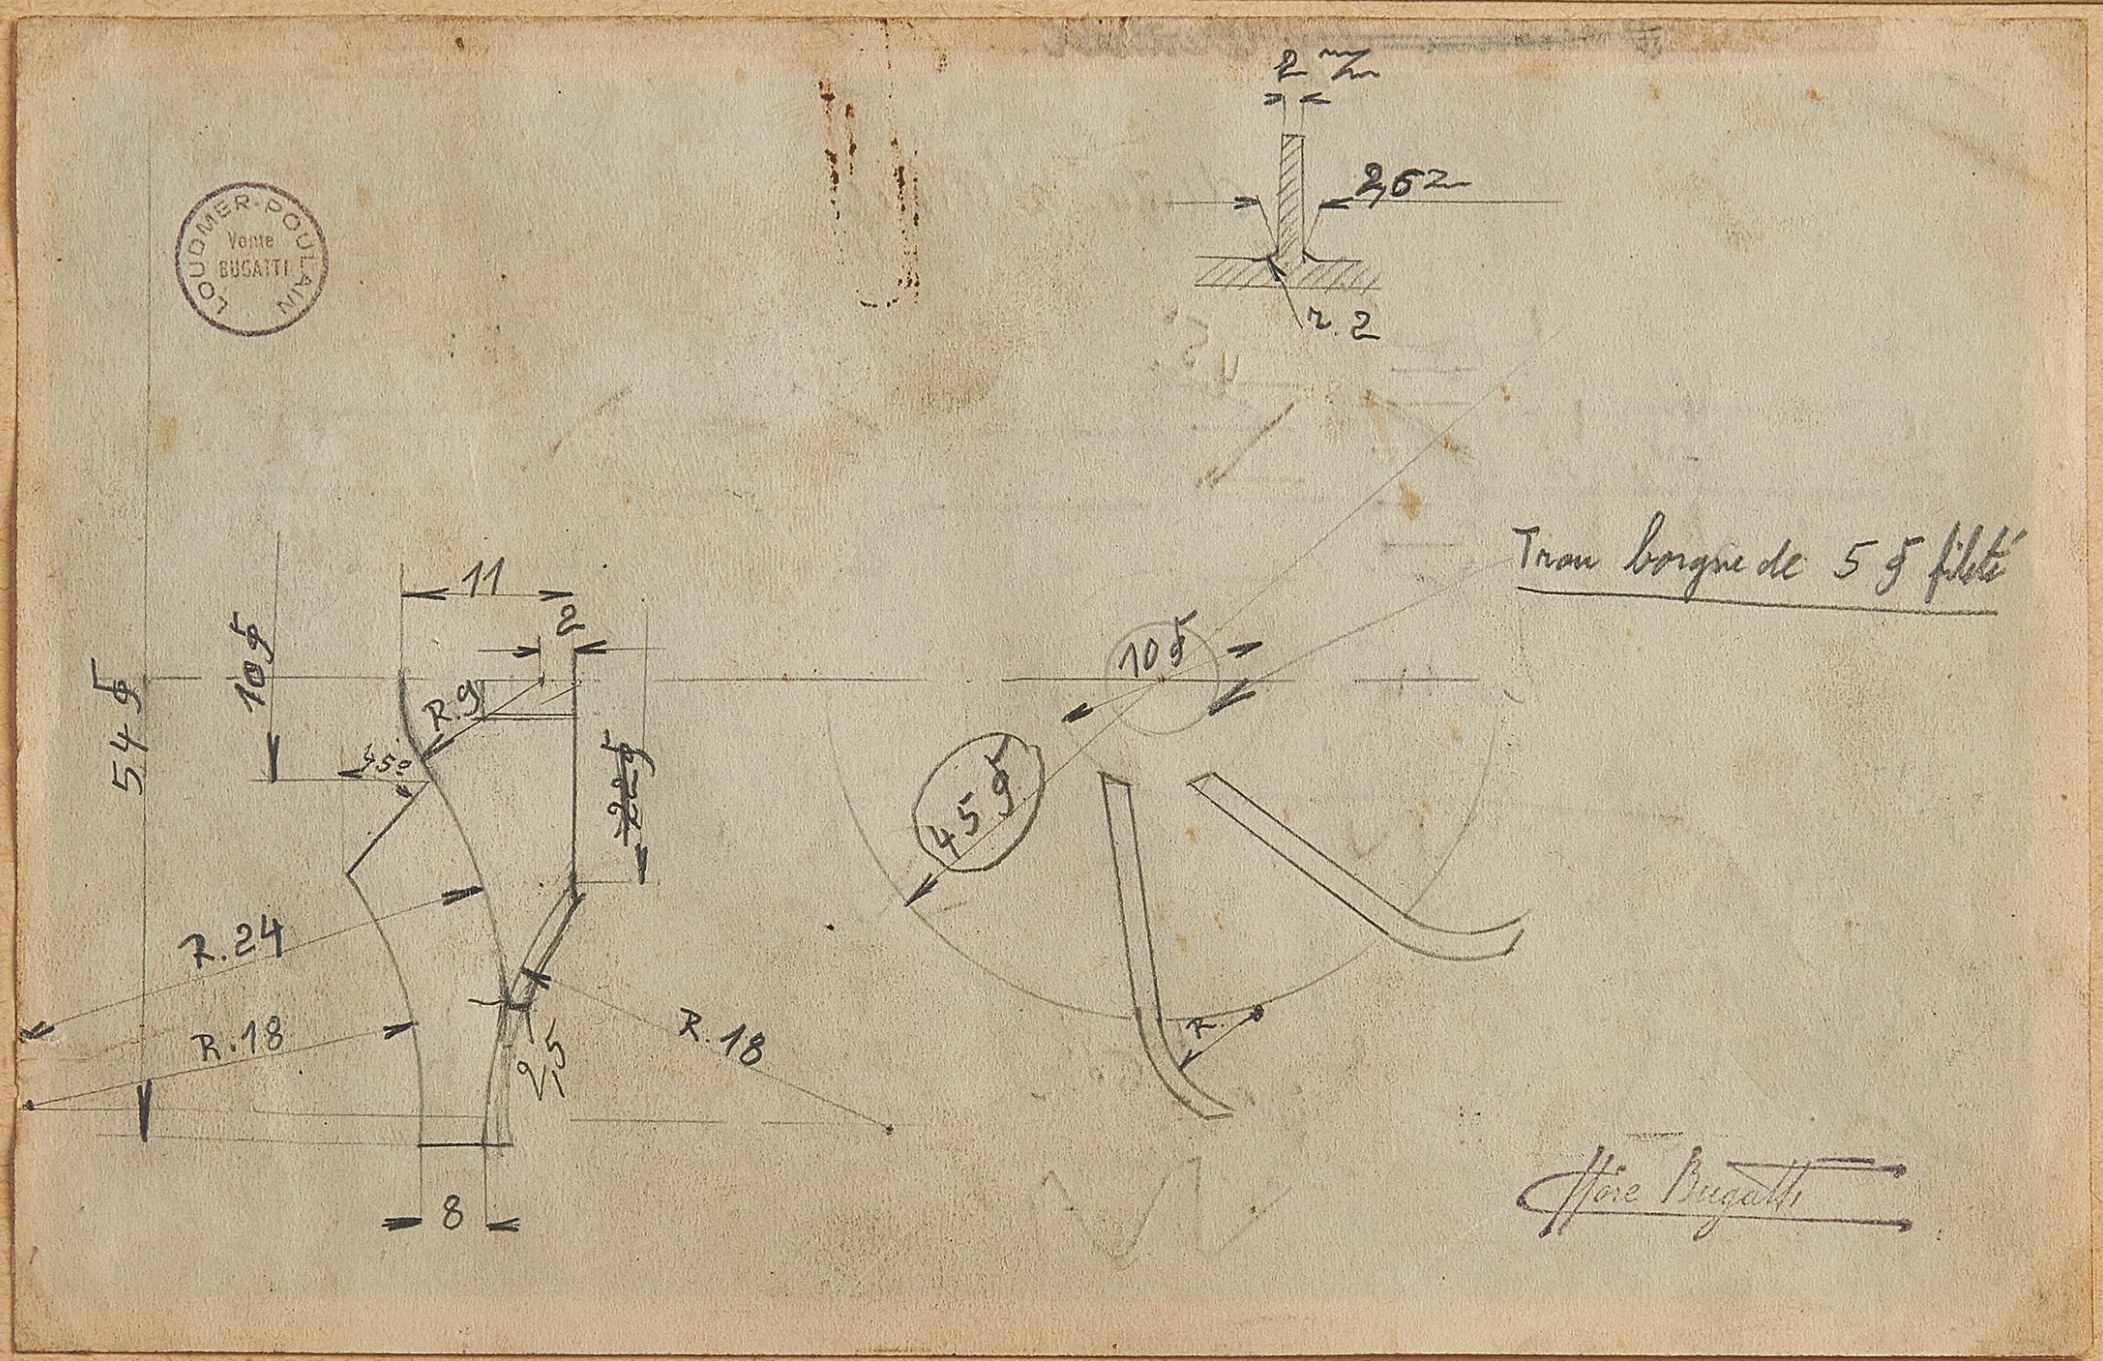 2 m/m
LOUDMER-POULAIN
Vente
BUGATTI
r. 2
Trou borgne de 5 ϕ fileté
11
2
10 ϕ
10 ϕ
R.9
54 ϕ
45°
22 ϕ
45 ϕ
R.24
R.18
R.18
R.
2,5
8
Ettore Bugatti